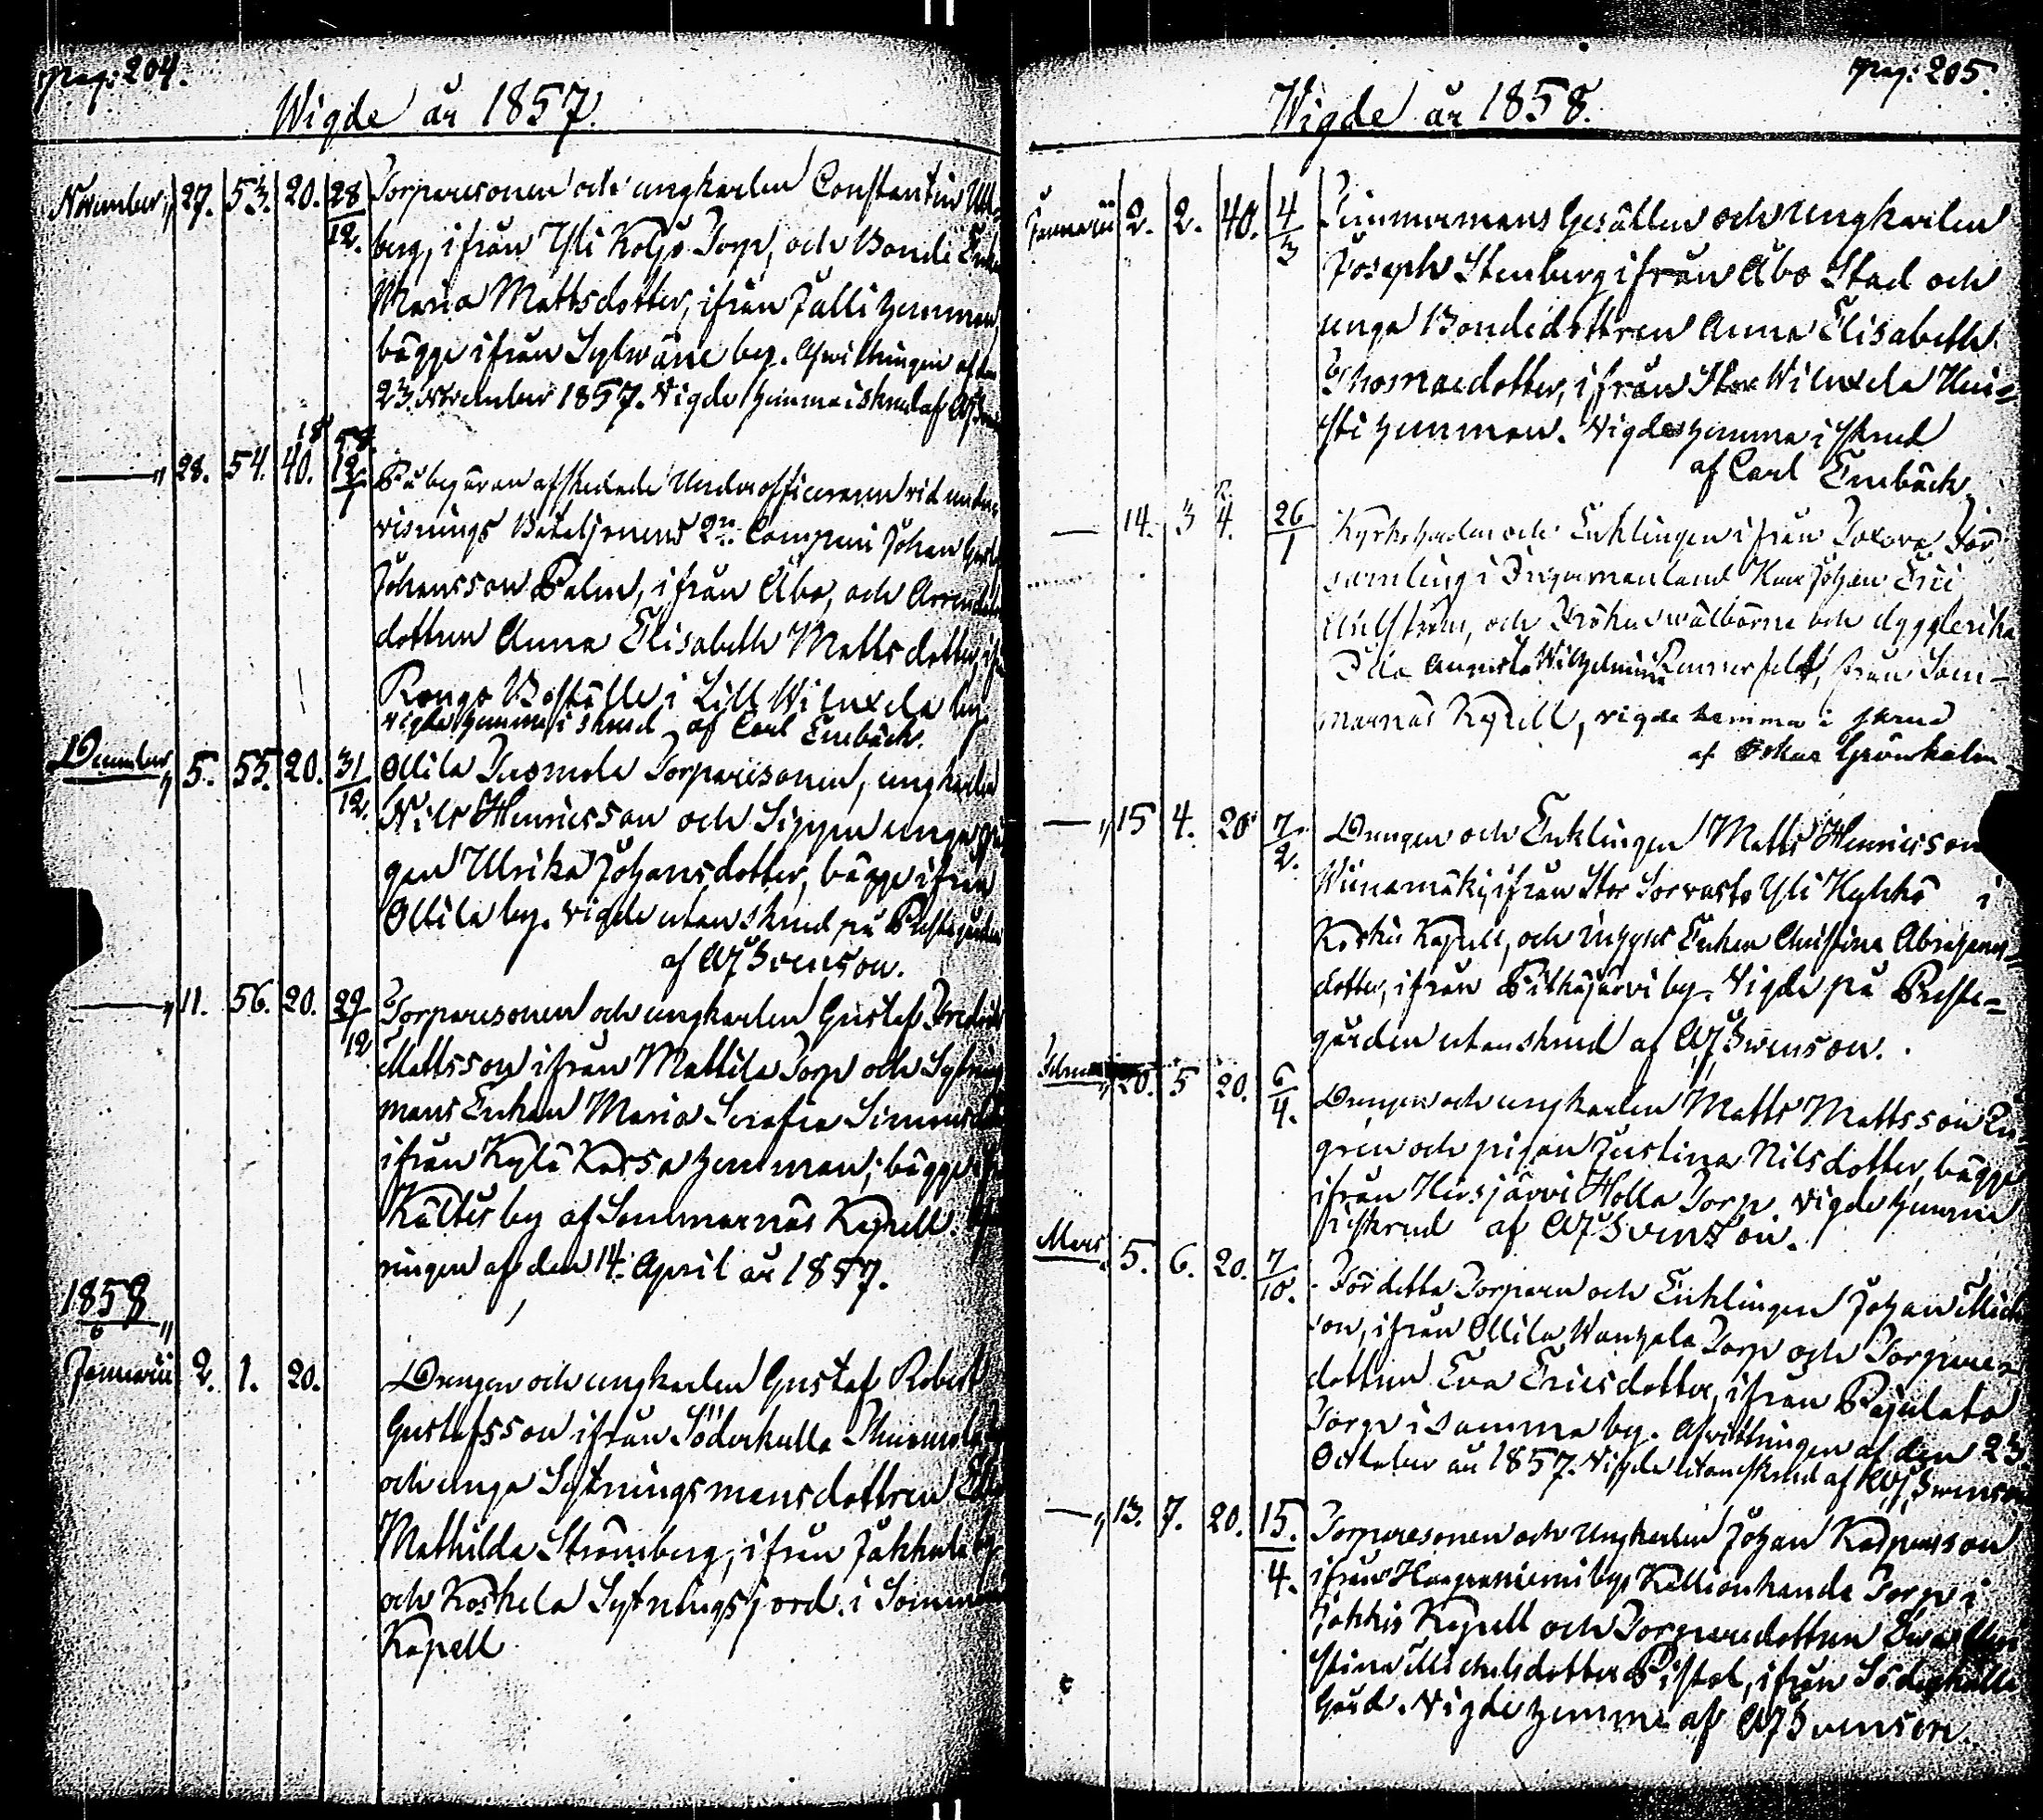 pag: 204.
Wigde år 1857.
November 27. 53. 20. 28/12. Torparesonen och ungkarlen Constantin
berg, ifrån Yli Koljo Torp, och Bonde Enkan
Maria Mattsdotter, ifrån Jalli hemman,
bägge ifrån Sylwäne by. Afwittringen af den
23. November 1857. Vigde hemma i skrud af
— 28. 54. 40. 18 58. 12/1 På begäran afskedade Underofficeraren vid under-
visnings Bataljonens 2n Compani Johan
Johansson Palm, ifrån Åbo, och
dottren Anna Elisabeth Mattsdotter,
Rongo Boställe i Lill Wiluxela by
vigde hemma i skrud af Carl Enebäck.
December 5. 55. 20. 31/12. Ollila Tuomola Torparesonen, ungkarlen
Nils Henricsson och Sippen unga pi-
gan Ulrika Johansdotter, bägge ifrån
Ollila by. vigde utan skrud på Prestgården
af AJ Svenson.
— 11. 56. 20. 29/12 Torparesonen och ungkarlen Gustaf Fredrik
Mattsson ifrån Mattila Torp och Sytnings
mans Enkan Maria Serafia Simonsdotter
ifrån Kylä Kassa hemman; bägge ifrån
Kältis by af Sommarnäs Kapell.
ringen af den 14. April år 1857.
1858
Januarii 2. 1. 20. Drengen och ungkarlen Gustaf Robert
Gustafsson ifrån Söderkulla
och unga Sytningsmansdottren
Mathilda Strömberg, ifrån Jakkula by
och Koskela Sytningsjord i
Kapell
pag: 205.
Wigde år 1858.
Januarii 2. 2. 40. 4/3 Timmermans Gesällen och Ungkarlen
Joseph Stenberg ifrån Åbo Stad och
unga Bondedottren Anna Elisabeth
Thomasdotter, ifrån Stor Wiluxela Uni-
sti hemman. Vigde hemma i skrud
af Carl Enebäck
— 14. 3 R. 4. 26/1 Kyrkoherden och Enklingen ifrån Toxova För
samling i Ingermanland Herr Johan Eric
Ahlström, och Fröken wälborna och dygderika
Ulla Augusta Wilhelmina, från Som-
marnäs Kapell, vigde hemma i skrud
af Oskar Grönholm
— 15 4. 20 7/2. Drengen och Enklingen Matts Henricsson
Wiinamäki, ifrån Stor Sorvasto Yli Kyhkö i
Koskis Kapell, och Inhyses Enkan Christina Abrahams-
dotter, ifrån Pitkäjärvi by. Vigde på Preste-
gården utan skrud af AJ Swenson.
20. 5 20. 6/4. Drengen och ungkarlen Matts Mattsson
gren och pigan Justina Nilsdotter, bägge
ifrån Hirsjärvi Holla Torp vigde hemma
i skrud af AJ Svenson.
Mars 5. 6. 20. 7/10. Fördetta Torparen och Enklingen Johan
son, ifrån Ollila Wanhala Torp och Torpare-
dottren Eva Ericsdotter, ifrån Pajulato
Torp i samma by. Afvittringen af den 23.
October år 1857. Vigde utan skrud af AJ Swenson
— 13. 7. 20. 15./4. Torparesonen och Ungkarlen Johan Kaspersson
ifrån Haapaniemi by Kallionkanda Torp i
Jokkis Kapell och Torparedottren Eva
stina Michelsdotter Pistol, ifrån Söderkulla
Gård. Vigde hemma af AJ Svenson.